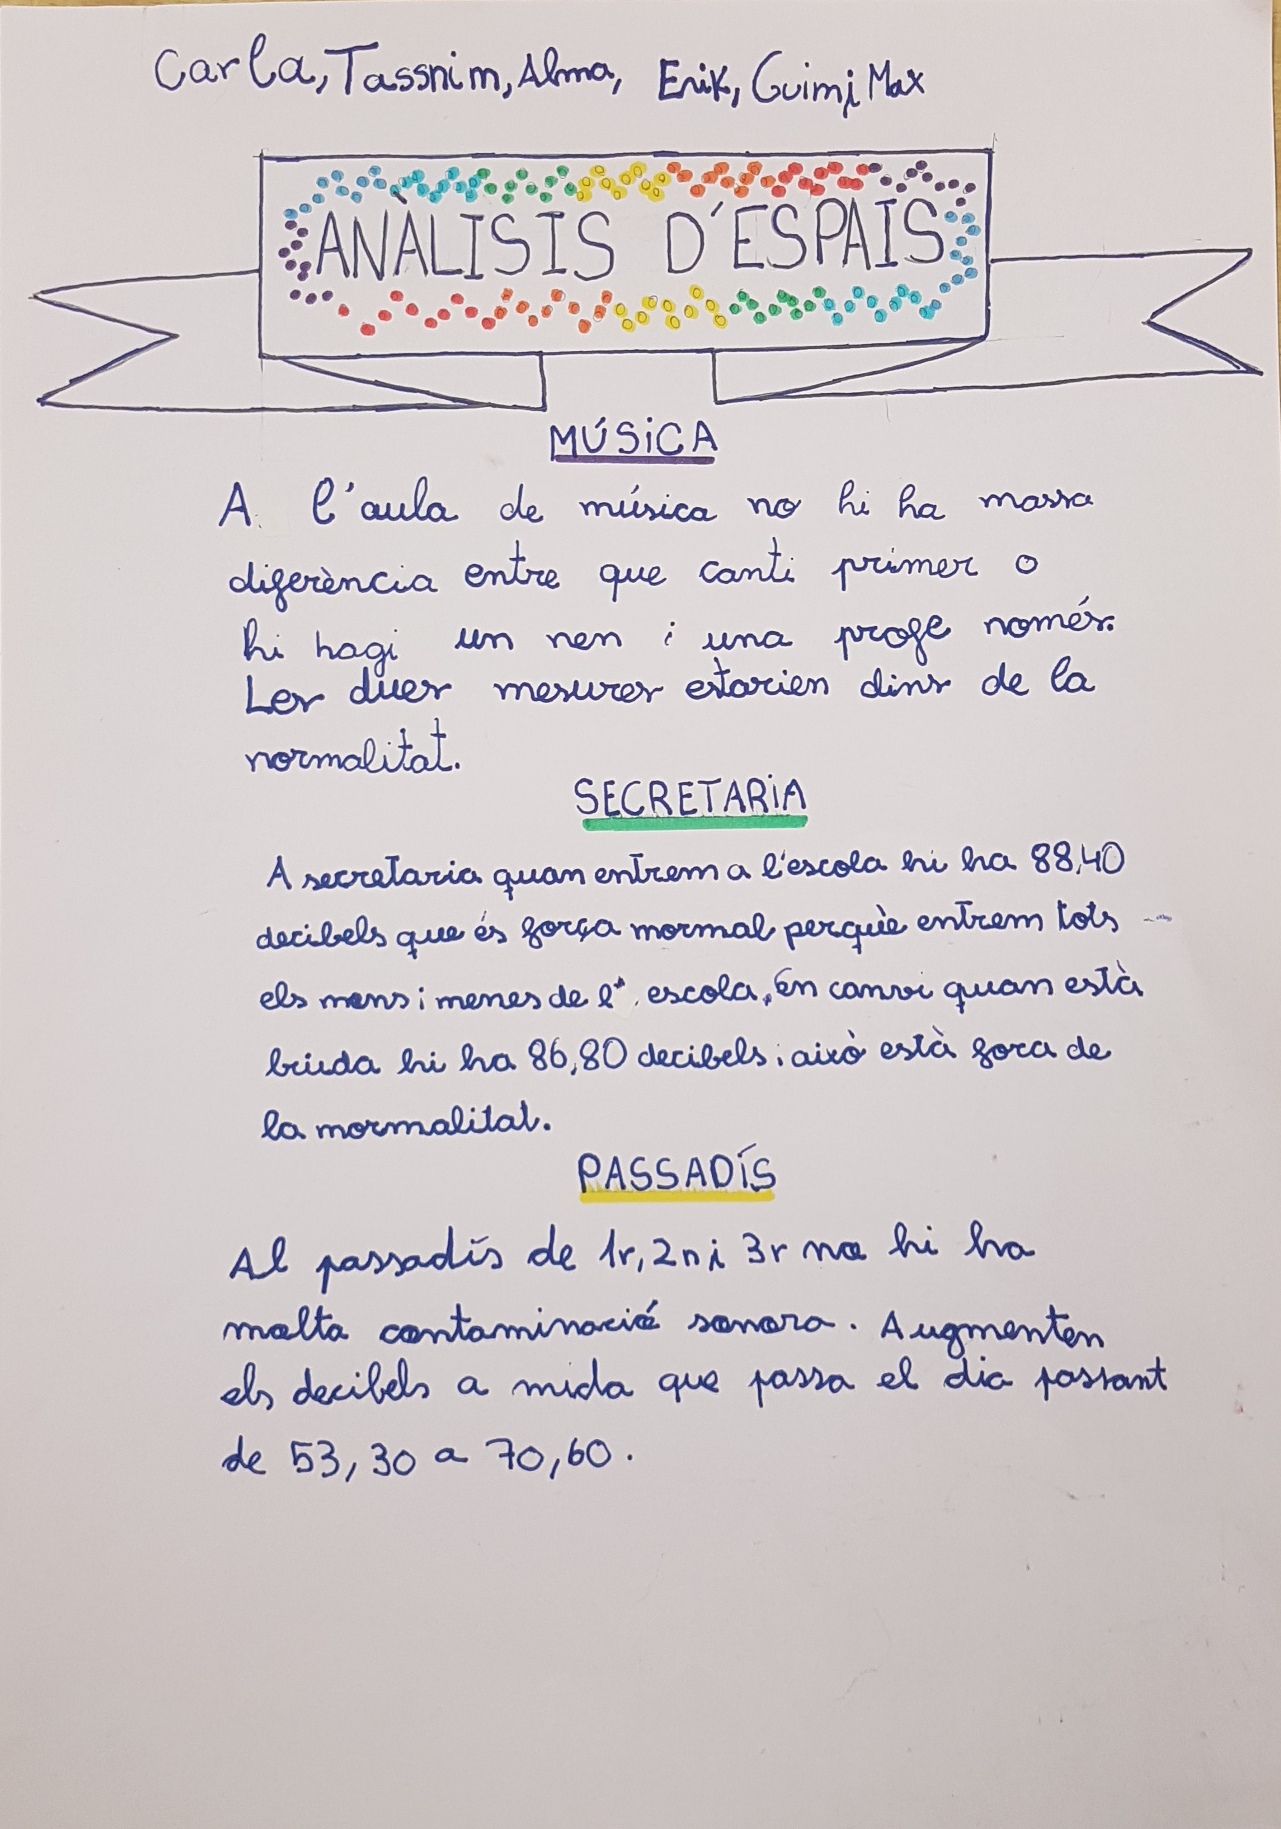 Carla, Tassnim, Alma, Erik, Guim i Max
ANÀLISIS D'ESPAIS
MÚSiCA
A l'aula de música no hi ha massa
diferència entre que canti primer o
hi hagi un nen i una profe només.
Les dues mesures estarien dins de la
normalitat.
SECRETARiA
A secretaria quan entrem a l'escola hi ha 88,40
decibels que és força normal perquè entrem tots
els nens i nenes de l' escola, En canvi quan està
buida hi ha 86,80 decibels i això està fora de
la normalitat.
PASSADÍS
Al passadís de 1r, 2n i 3r no hi ha
molta contaminació sonora. Augmenten
els decibels a mida que passa el dia passant
de 53,30 a 70,60.